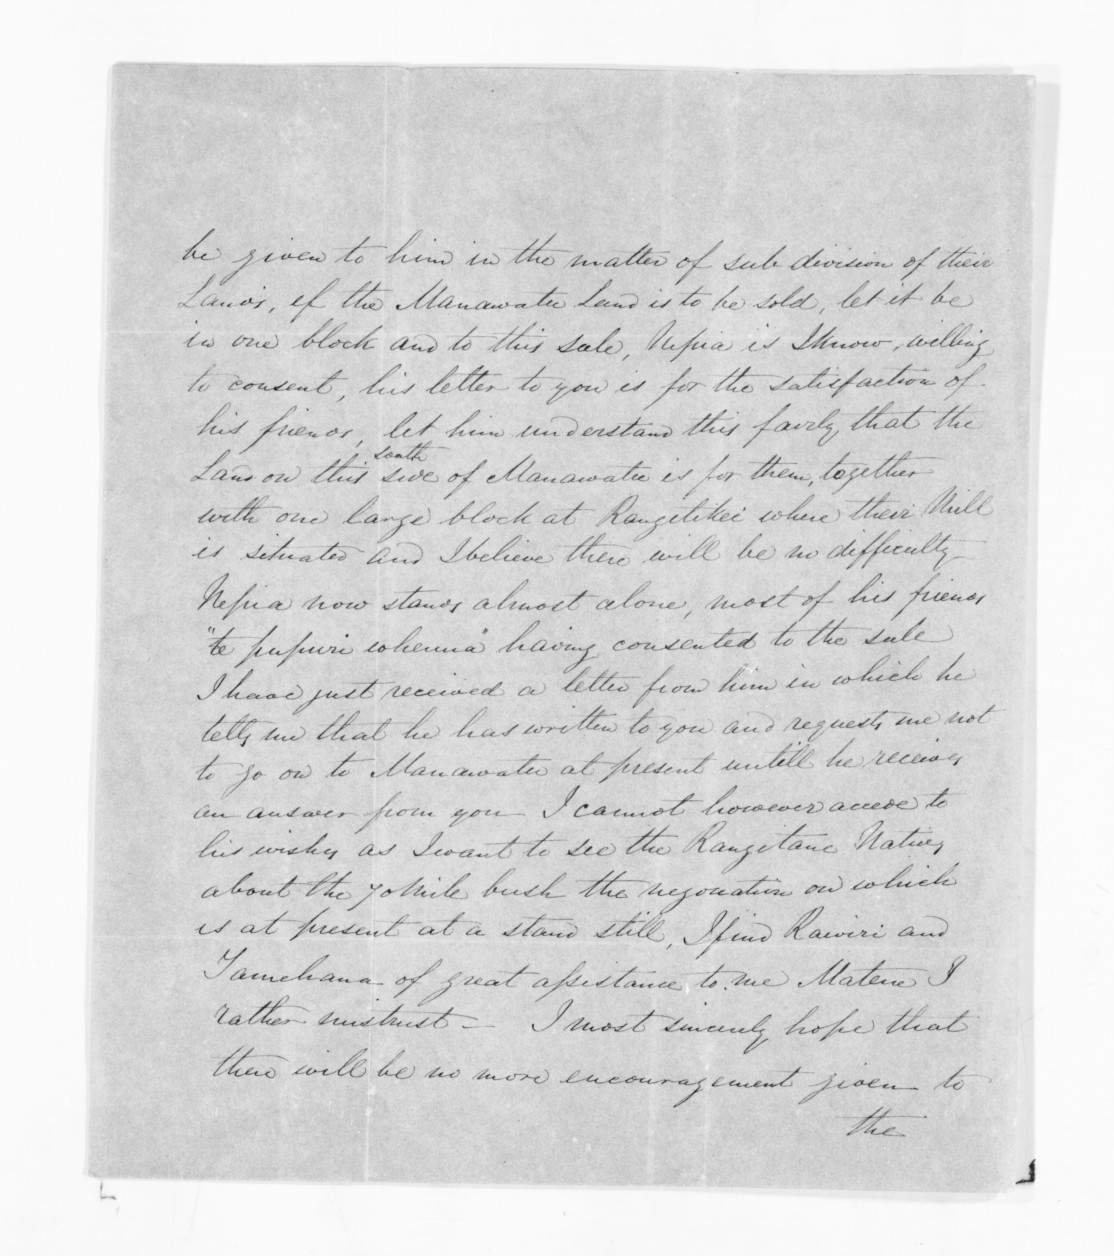 be given to him in the matter of sub division of their
Lands, if the Manawatu Land is to be sold, let it be
in one block and to this sale, Nepia is I know, willing
to consent, his letter to you is for the satisfaction of
his friends, let him understand this fairly that the
south
Land on this side of Manawatu is for them, together
with one large block at Rangitikei where their Mill
is situated and I believe there will be no difficulty
Nepia now stands almost alone, most of his friends
"te pupuri whenua" having consented to the sale
I have just received a letter from him in which he
tells me that he has written to you and requests me not
to go on to Manawatu at present untill he receives
an answer from you – I cannot however accede to
his wishes as I want to see the Rangitane Natives
about the 70 Mile bush the negotiation on which
is at present at a stand still, I find Rawiri and
Tamehana of great assistance to me Matene I
rather mistrust – I most sincerely hope that
there will be no more encouragement given to
the